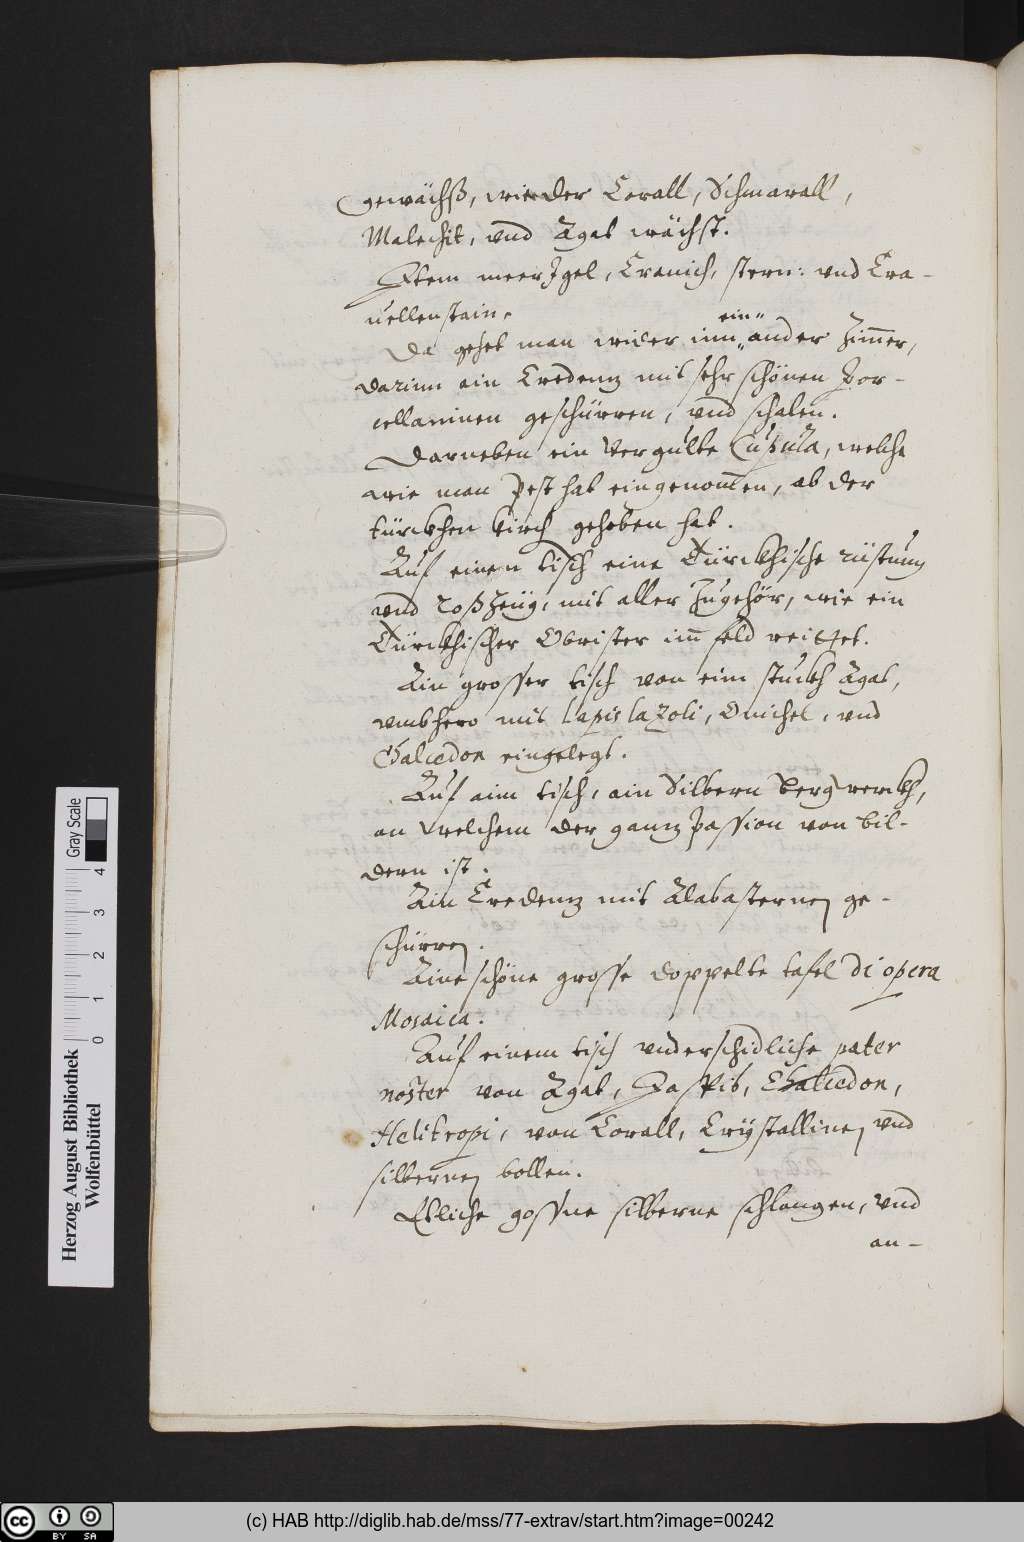 gewächß, wie der Corall, Schmarall,
Malechit, vnd Agat wächst.
Item meer Jgel, Cranich, stern: vnd Cra-
uellenstain.
ein
Da gehet man wider inn ander Zim̄er,
darinn ein Credentz mit sehr schönen Por-
cellaninen geschürren, vnd schalen.
Darneben ein vergulte Cupula, welche
wie man Pest hat eingenom̄en, ab der
türckhen kirch gehoben hat.
Auf einen tisch eine Türckhische rüstung
vnd Roßzeüg, mit aller Zugehör, wie ein
Türckhischer Obrister im̄ feld reittet.
Ain grosser tisch von eim stuckh Agat,
vmbhero mit Lapis lazoli, Onichel, vnd
Chalcedon eingelegt.
Auf aim tisch, ain Silbern Bergwerckh,
an welchem der gantz Passion von bil-
dern ist.
Ain Credentz mit Alabasternen ge-
schürren.
Aine schöne grosse doppelte tafel di opera
Mosaica.
Auf einem tisch vnderschidliche pater
noster von Agat, Jaspis, Chalcedon,
Helitropi, von Corall, Crÿstallinen vnd
silbernen bollen.
Etliche gossne silberne schlangen, vnd
an-
Herzog August Bibliothek
Wolfenbüttel
Gray Scale
0 1 2 3 4
cc BY SA
(c) HAB http://diglib.hab.de/mss/77-extrav/start.htm?image=00242